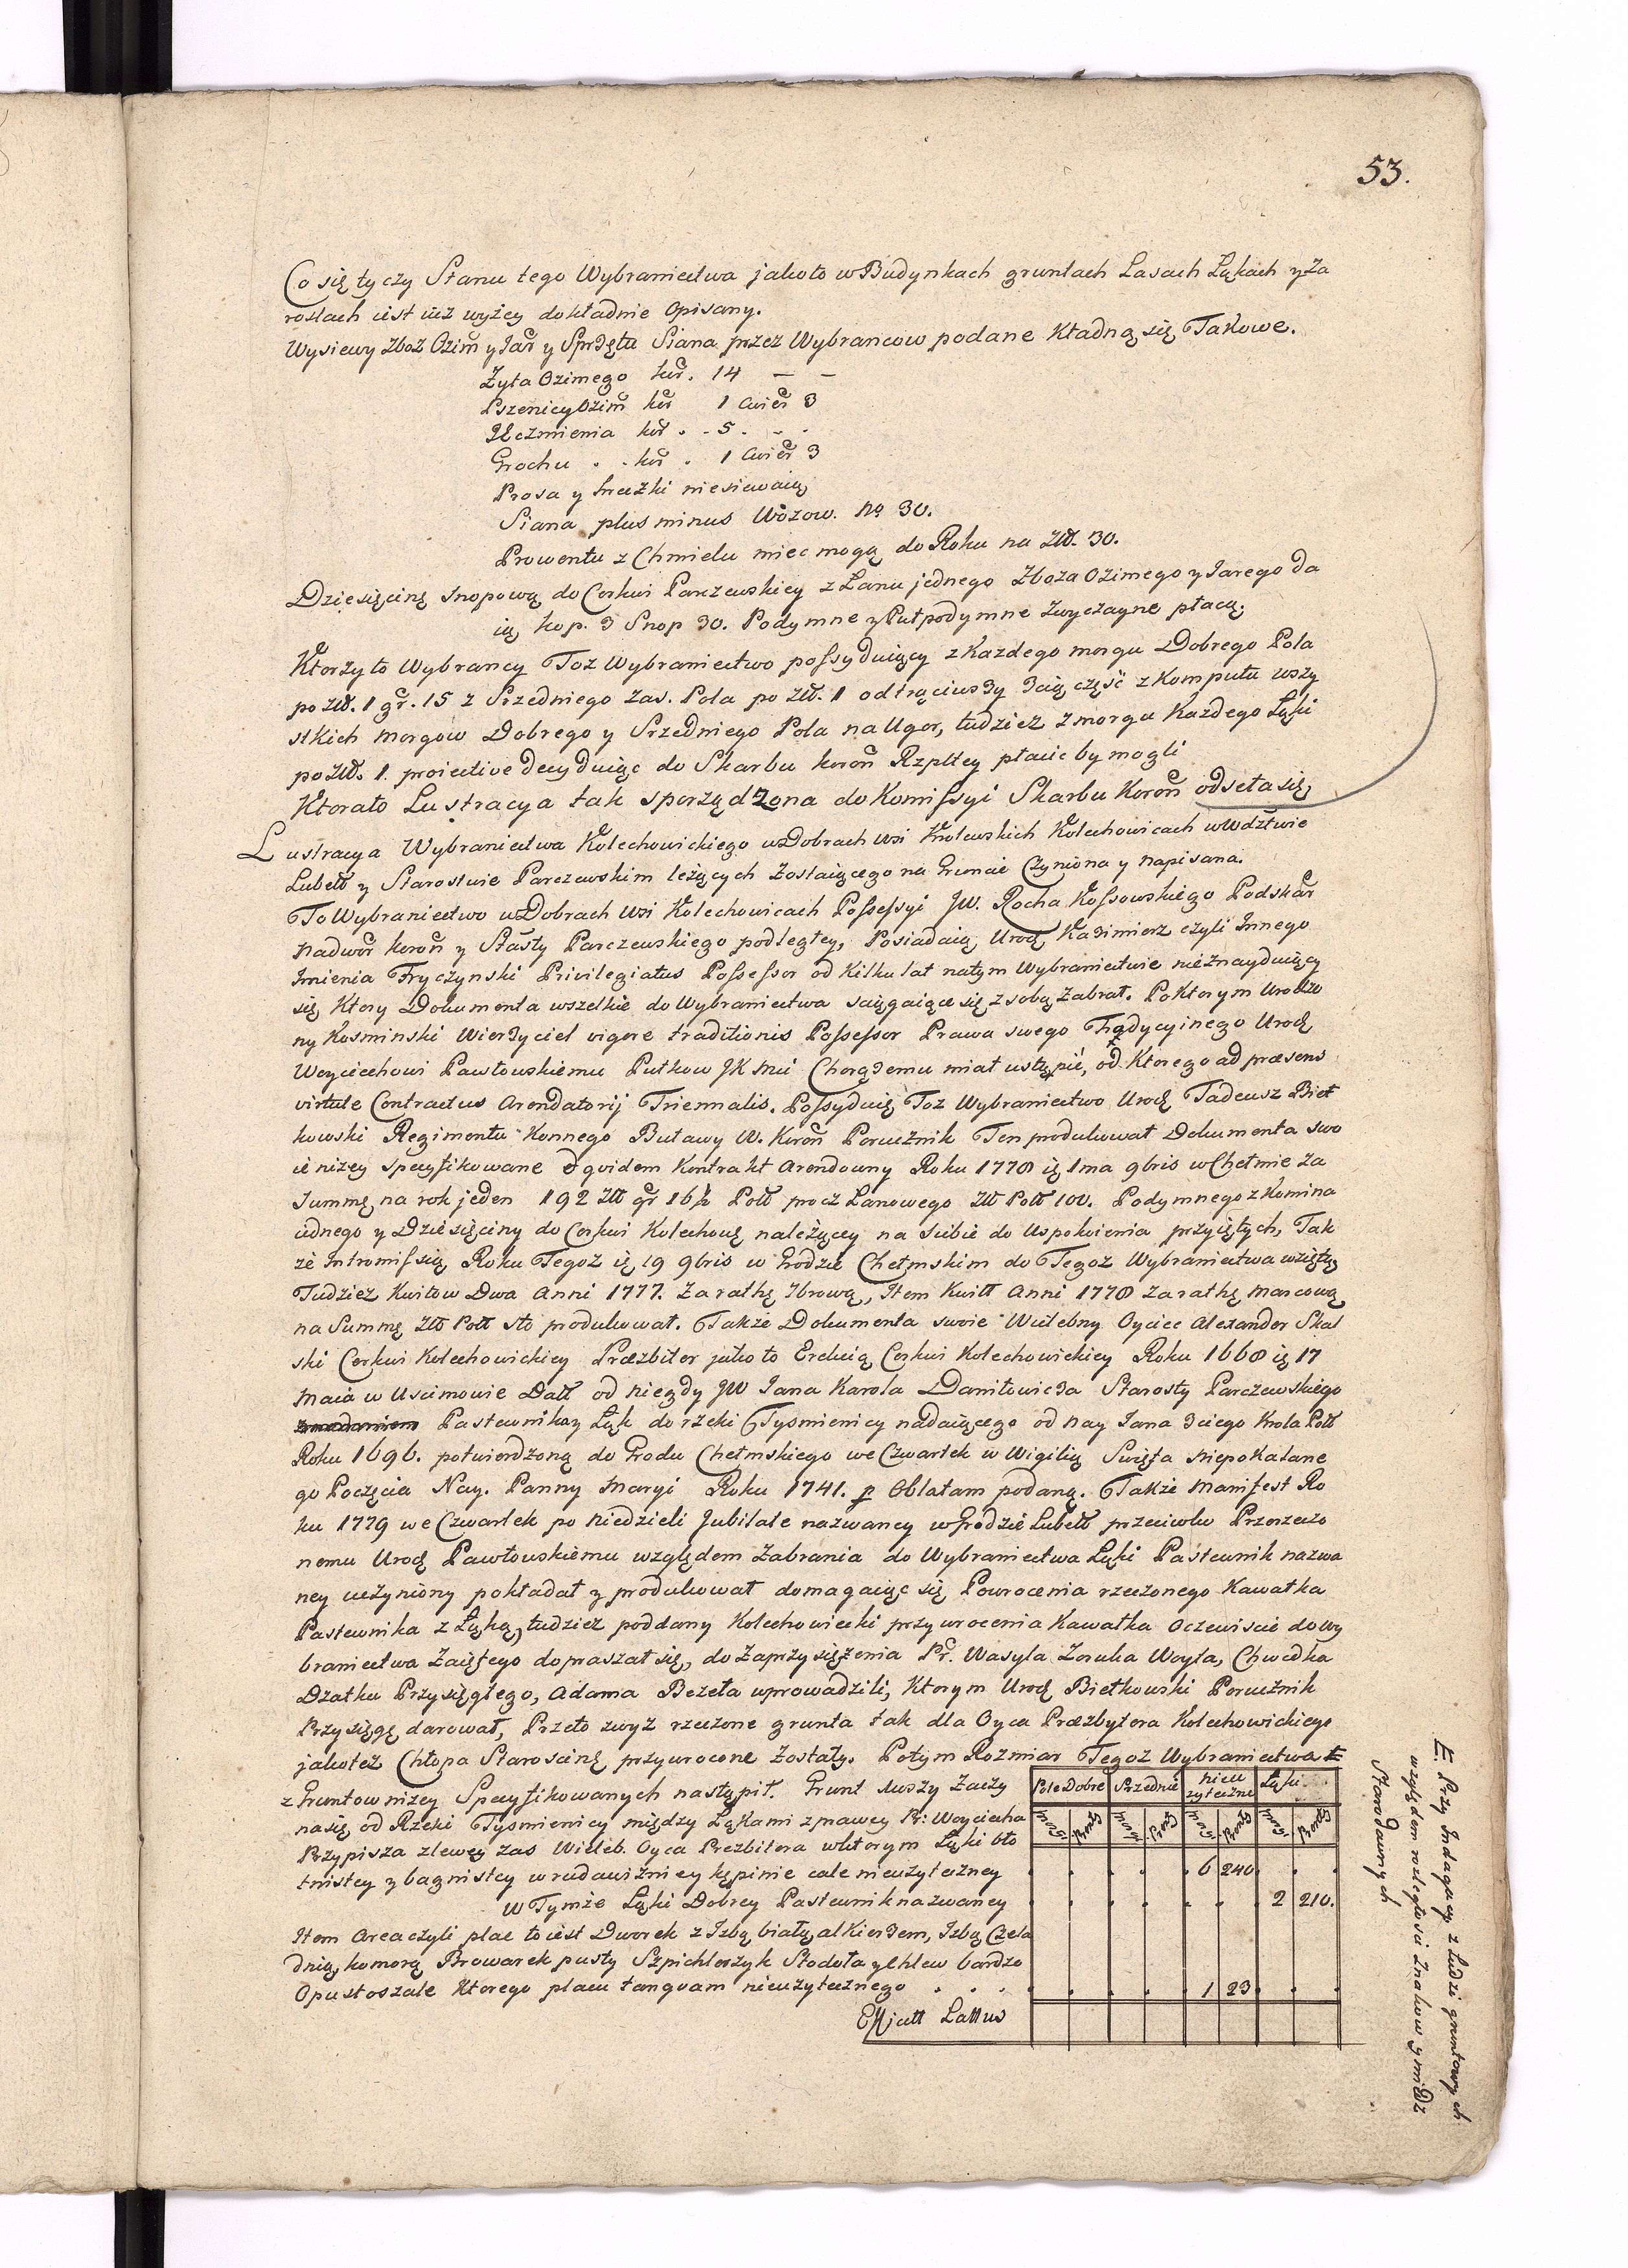 53.
Co się tyczy Stanu tego Wybraniectwa jakoto w Budynkach gruntach Lasach Łąkach y Za
roslach iest iuz wyżey dokładnie Opisany.
Wysiewy zboz Ozim y Jar y Sprzętu Siana przez Wybrancow podane Kładną się Takowe.
Zyta Ozimego kor. 14 — —
Pszenicy Ozim kor 1 Cwier 3
Jęczmienia kor . . 5 . - .
Grochu . . kor . 1 Cwier 3
Prosa y hreczki niesiewaią
Siana plus minus Wozow. No 30.
Prowentu z Chmielu miec mogą do Roku na Złł. 30.
Dziesięcinę Snopową do Cerkwi Parczewskiey z Łanu jednego Zboza Ozimego y Jarego da
ią kop. 3 Snop 30. Podymne y Pułpodymne Zwyczayne płacą.
Ktorzy to Wybrancy Toz Wybraniectwo possyduiący z Kazdego morgu Dobrego Pola
po Złł. 1 gr. 15 z Srzedniego zas. Pola po Złł. 1 odtrąciwszy 3cią częsć z Komputu wszy
stkich Morgow Dobrego y Srzedniego Pola na Ugor, tudziez z morgu Kazdego Łąki
po Złł. 1. proiective decyduiąc do Skarbu koron Rzpltey płacic by mogli
Ktorato Lustracya tak sporządzona do Komissyi Skarbu Koron odseła się
Lustracya Wybraniectwa Kolechowickiego w Dobrach Wsi Krolewskich Kolechowicach w Wdztwie
Lubell y Starostwie Parczewskim leżących Zostaiącego na Gruncie Czyniona y napisana.
To Wybraniectwo w Dobrach Wsi Kolechowicach Possessyi JW. Rocha Kossowskiego Podskar
Nadwor koron y Stasty Parczewskiego podległey, Posiadaią Urod Kazimierz czyli Innego
Imienia Fryczynski Privilegiatus Possessor od Kilku lat natym Wybraniectwie nieznayduiący
się Ktory Dokumenta wszelkie do Wybraniectwa sciągaiące się z sobą Zabrał. Po Ktorym Urodzo
ny Kosminski Wierzyciel vigore traditionis Possessor Prawa swego Tradycyinego Urod
Woyciechowi Pawłowskiemu Pułkow JK Mci Chorązemu miał ustąpić, od Ktorego ad præsens
virtute Contractus Arendatorij Triennalis. Possyduię Toz Wybraniectwo Urod Tadeusz Bieł
kowski Regimentu Konnego Buławy W. Koron Porucznik Ten produkował Dokumenta swo
ie nizey specyfikowane et quidem Kontrakt Arendowny Roku 1778 ię 1ma 9bris w Chełmie za
Summę na rok jeden 192 złł gr 16½ Poll procz Łanowego Złł Poll 100. Podymnego z Komina
iednego y Dziesięciny do Cerkwi Kolechow należącey na siebie do Uspokoienia przyiętych, Tak
że Intromissią Roku Tegoz ię 19 9bris w Grodzie Chełmskim do Tegoz Wybraniectwa wziętą
Tudziez Kwitow Dwa Anni 1777. Za rathę 7brową, Item Kwitt Anni 1778 za rathę Marcową
na Summę Złł Poll sto produkował. Także Dokumenta swoie Wielebny Oyciec Alexander Skal
ski Cerkwi Kolechowickiey Præzbiter jako to Erekcią Cerkwi Kolechowickiey Roku 1668 ię 17
Maia w Uscimowie Datt od niegdy JW Jana Karola Daniłowicza Starosty Parczewskiego
Pastewnika y Łąk do rzeki Tysmienicy nadaiącego od nay Jana 3ciego Krola Poll
Roku 1696. potwierdzoną do Grodu Chełmskiego we Czwartek w Wigilią Swięta Niepokalane
go Poczęcia Nay. Panny Maryi Roku 1741. p Oblatam podaną. Także Manifest Ro
ku 1779 we Czwartek po Niedzieli Jubilate nazwaney w Grodzie Lubell przeciwko Przerzeczo
nemu Urod Pawłowskiemu względem Zabrania do Wybraniectwa Łąki Pastewnik nazwa
ney uczyniony pokładał y produkował domagaiąc się Powrocenia rzeczonego Kawałka
Pastewnika z Łąką, tudziez poddany Kolechowiecki przywrocenia Kawałka Oczewiscie do Wy
braniectwa Zaiętego dopraszał się, do Zaprzysiężenia Pr. Wasyla Zoruka Woyta, Chwedka
Dzatku Przysięgłego, Adama Bezeta uprowadzili, Ktorym Urod Biełkowski Porucznik
Przysięgę darował, Przeto zwyz rzeczone grunta tak dla Oyca Præzbytera Kolechowickiego
jakotez Chłopa Staroscinę przywrocone Zostały. Potym Rozmiar Tegoz Wybraniectwa
z Gruntow nizey Specyfikowanych nastąpił. Grunt Zaczy
na się od Rzeki Tysmienicy między Łąkami z prawey Pr: Woyciecha
Przypisza z lewey zas Wieleb. Oyca Prezbitera w ktorym Łąki bło
tnistey y bagnistey w rudawizniey kępinie cale nieuzyteczney
W Tymże Łąki Dobrey Pastewnik nazwaney
Item Area czyli plac to iest Dworek z Izbą białą alkierzem, Izbą Czela
dnią, komorą Browarek pusty Szpichlerzyk Stodoła y Chlew bardzo
Opustoszałe Ktorego placu tanquam nieuzytecznego . . .
Latus
Pole Dobre Srzednie nieu zyteczne Łąki
6 240
2 210.
1 23
E. Przy Indagacy z Ludzi gruntowych
względem rozległosci Znakow y miedz
Starodawnych